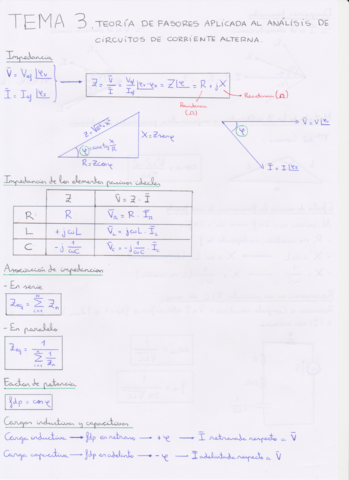 TEMA 3. TEORÍA DE FASORES APLICADA AL ANÁLISIS DE
CIRCUITOS DE CORRIENTE ALTERNA.
Impedancia
V̄ = Vef
Ī = Ief
Z̄ = V̄/Ī = Vef/Ief = Z = R + jX
Resistencia (Ω)
Reactancia (Ω)
Z = √(R²+X²)
φ = arctg X/R
X = Z senφ
R = Z cosφ
φ
Impedancias de los elementos pasivos ideales
Z̄ V̄ = Z̄ · Ī
R R V̄R = R · ĪR
L +jωL V̄L = jωL · ĪL
C -j 1/ωC V̄C = -j 1/ωC · ĪC
Asociación de impedancias
- En serie
- En paralelo
Factor de potencia
fdp = cosφ
Cargas inductivas y capacitivas
Carga inductiva → fdp en retraso → +φ → Ī retrasada respecto a V̄
Carga capacitiva → fdp en adelanto → -φ → Ī adelantada respecto a V̄